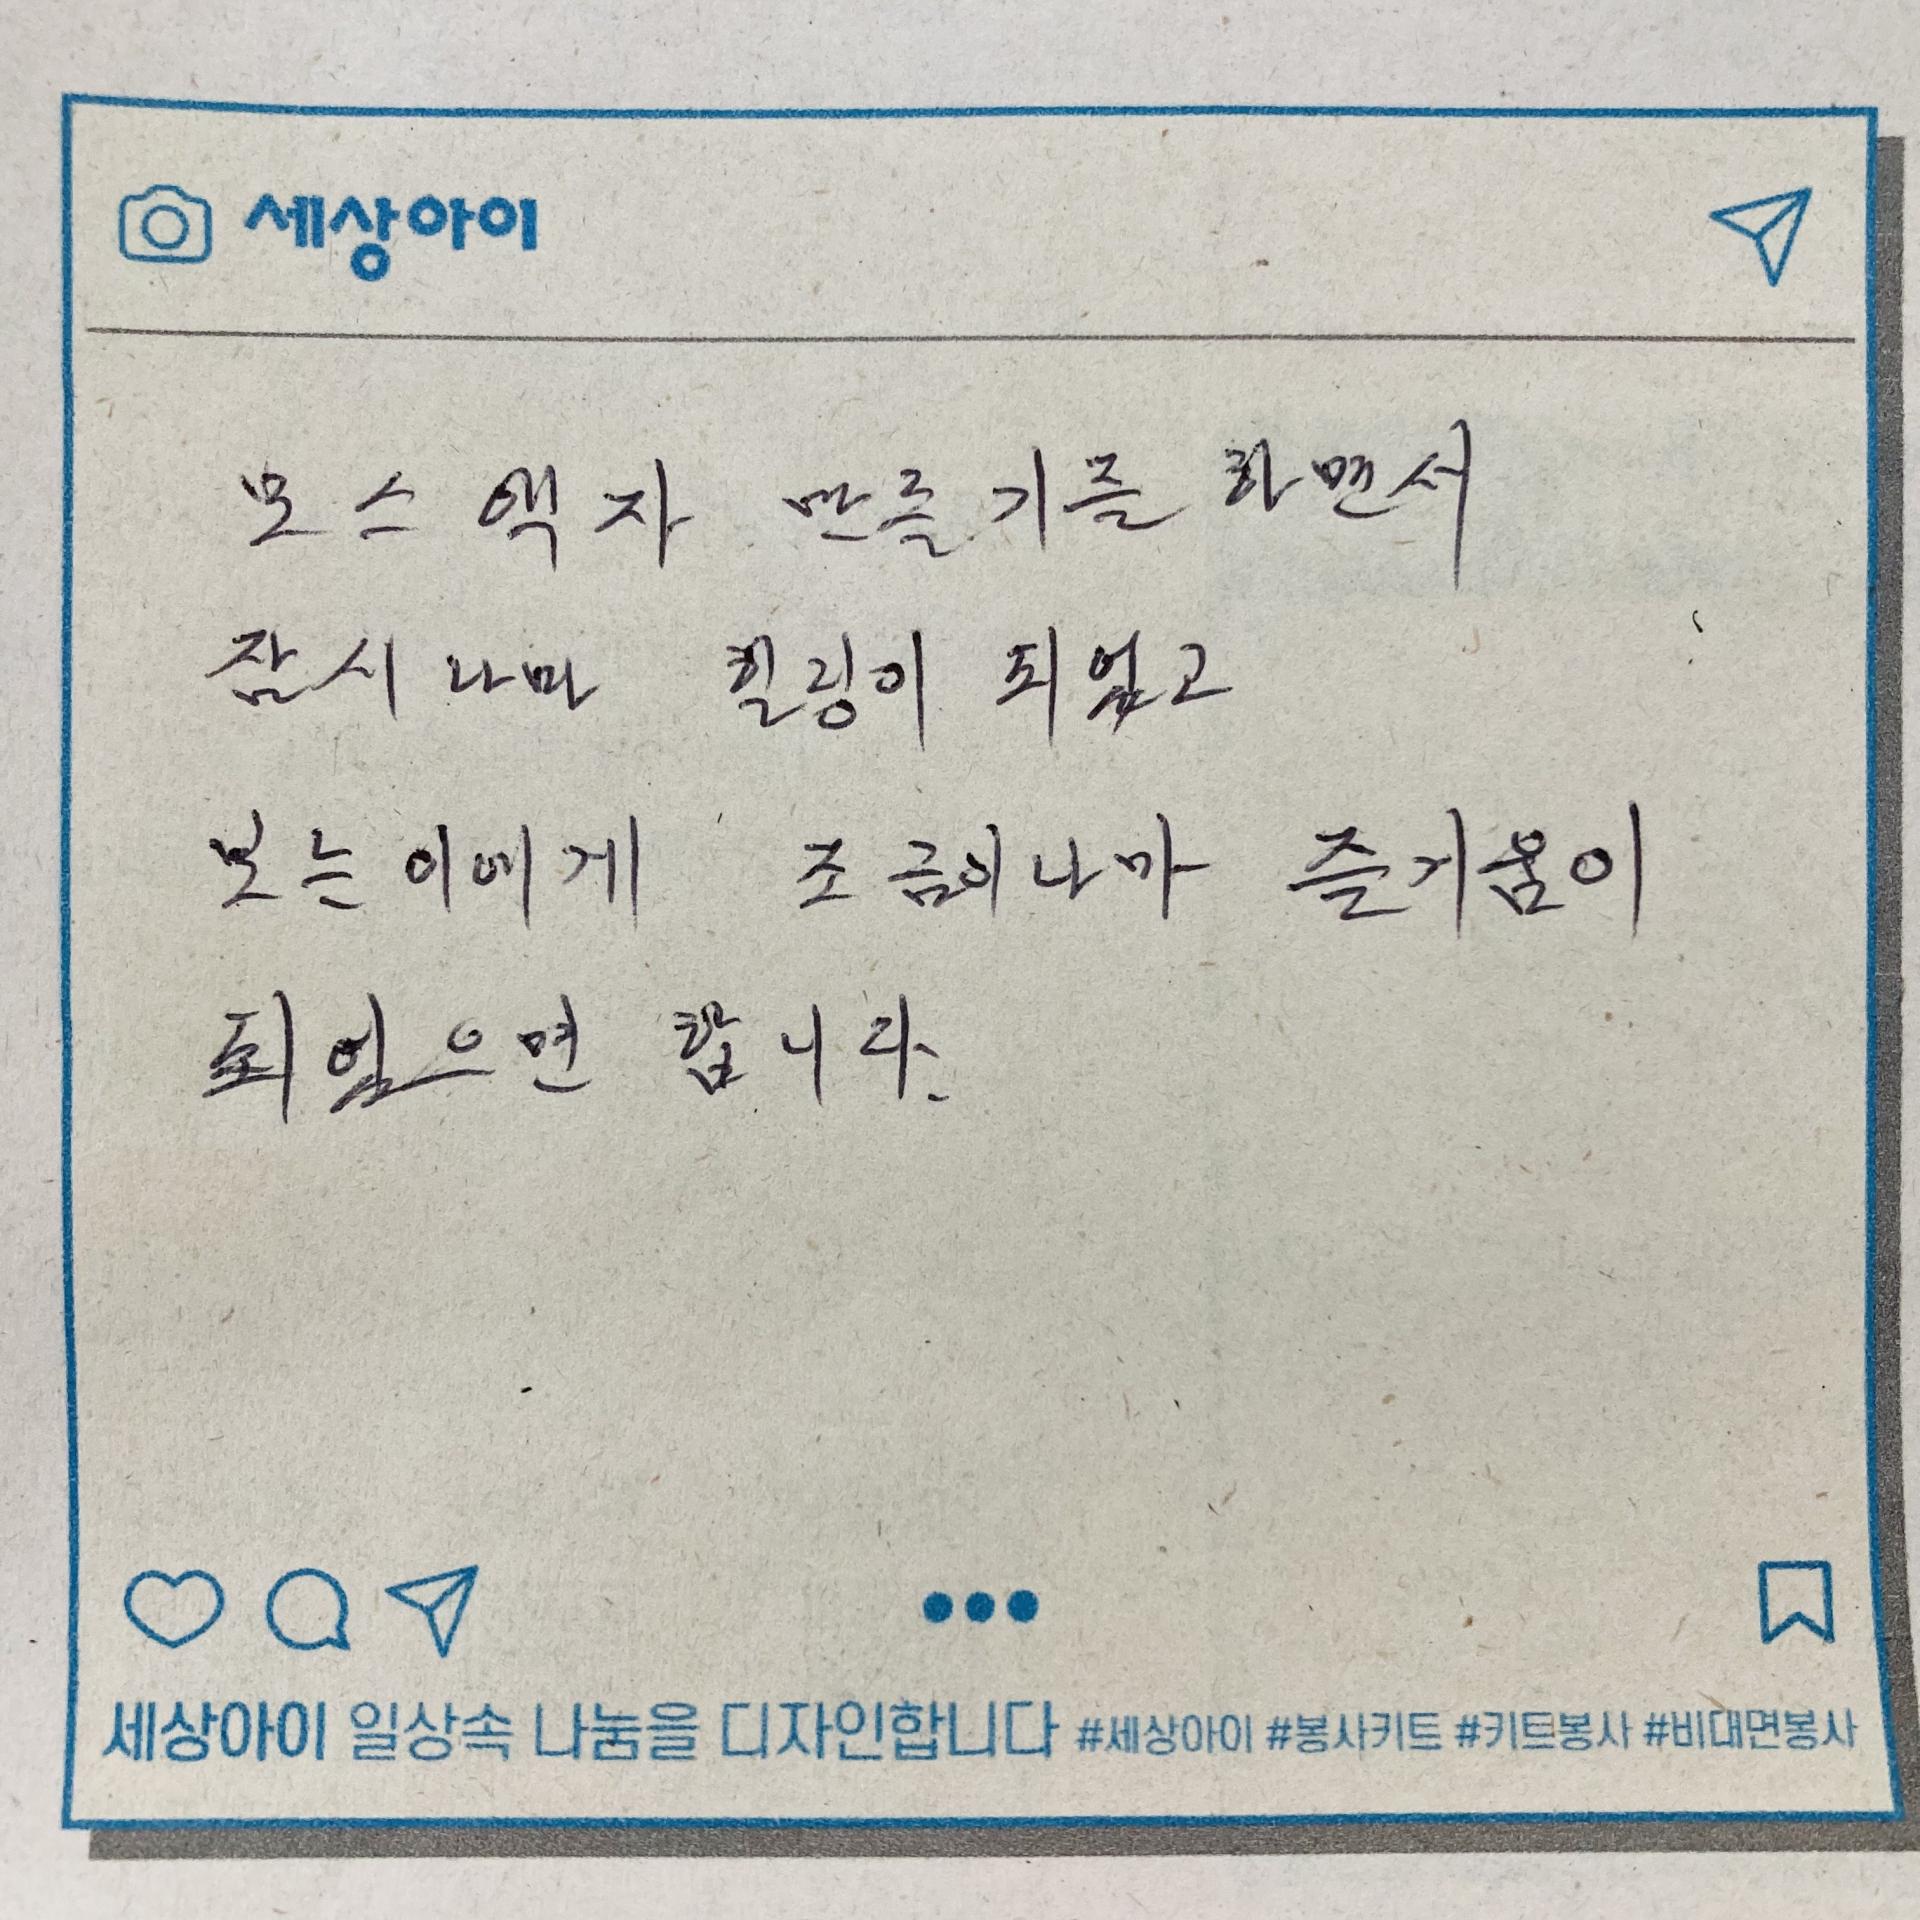 세상아이
모스 액자 만들기를 하면서
잠시나마 힐링이 되었고
보는이에게 조금이나마 즐거움이
되었으면 합니다.
세상아이 일상속 나눔을 디자인합니다 #세상아이 #봉사키트 #키트봉사 #비대면봉사